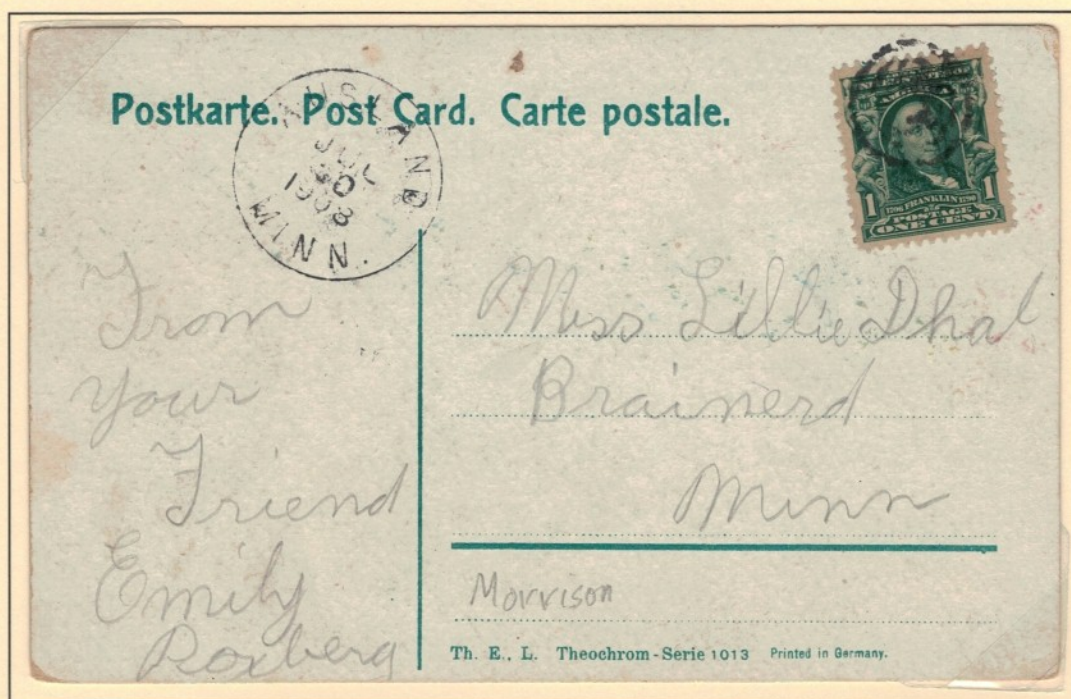 Postkarte. Post Card. Carte postale.
AUSLAND
JUL
1908
MINN.
1 1
1706 FRANKLIN 1790
POSTAGE
ONE CENT
From
Your
Friend
Emily
Roxberg
Miss Lillie Dhal
Brainerd
Minn
Morrison
Th. E., L. Theochrom-Serie 1013 Printed in Germany.